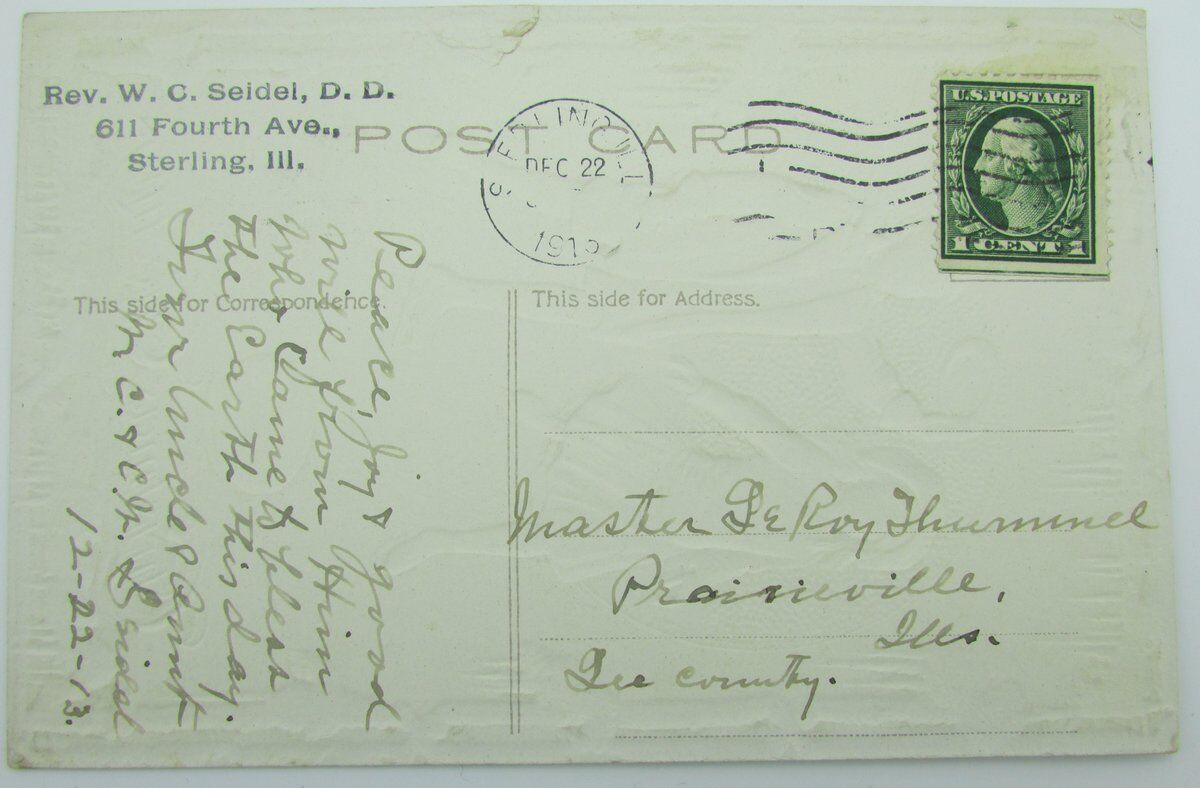 Rev. W. C. Seidel, D. D.
611 Fourth Ave.,
Sterling, Ill.
POST CARD
STERLING, ILL
DEC 22
1913
U.S. POSTAGE
1 CENT 1
This side for Correspondence.
This side for Address.
Peace, Joy & good
will from Him
who Came to bless
the Earth this day.
Your Uncle & Aunt
W. C. & C. M. Seidel
12-22-13.
Master Le Roy Thummel
Prairieville,
Ills.
Lee county.